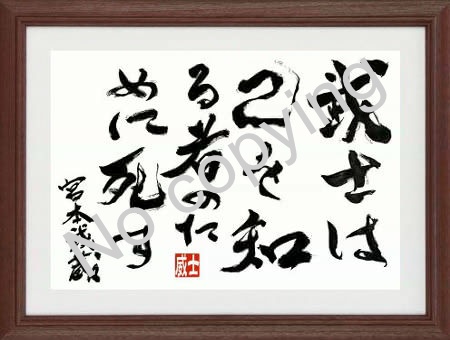 戦士は
己を知
る者のた
めに死す
宮本
威士
No copying